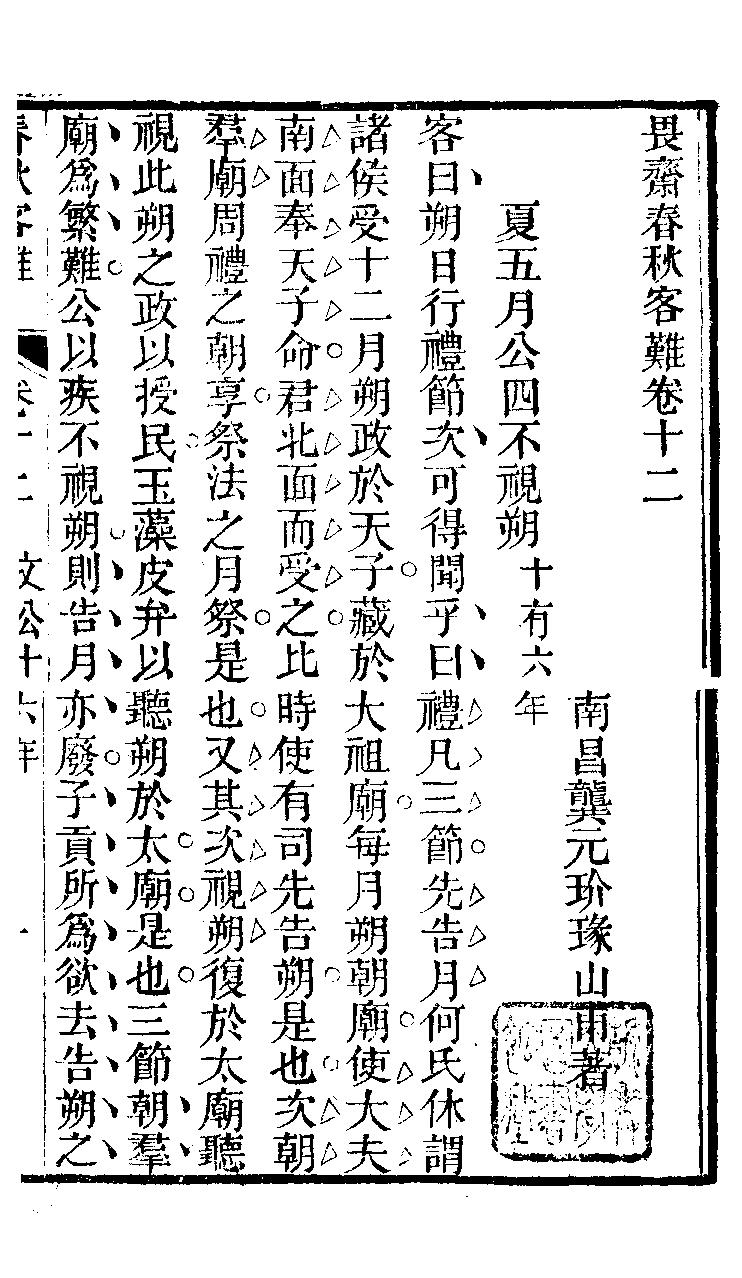 畏齋春秋客難卷十二
南昌龔元玠瑑山甫著
夏五月公四不視朔十有六年
客曰朔日行禮節次可得聞乎曰禮凡三節先告月何氏休謂
諸侯受十二月朔政於天子藏於大祖廟每月朔朝廟使大夫
南面奉天子命君北面而受之比時使有司先告朔是也次朝
羣廟周禮之朝享祭法之月祭是也又其次視朔復於太廟聽
視此朔之政以授民玉藻皮弁以聽朔於太廟是也三節朝羣
廟爲繁難公以疾不視朔則告月亦廢子貢所爲欲去告朔之
春秋客難 卷十二 文公十六年 一